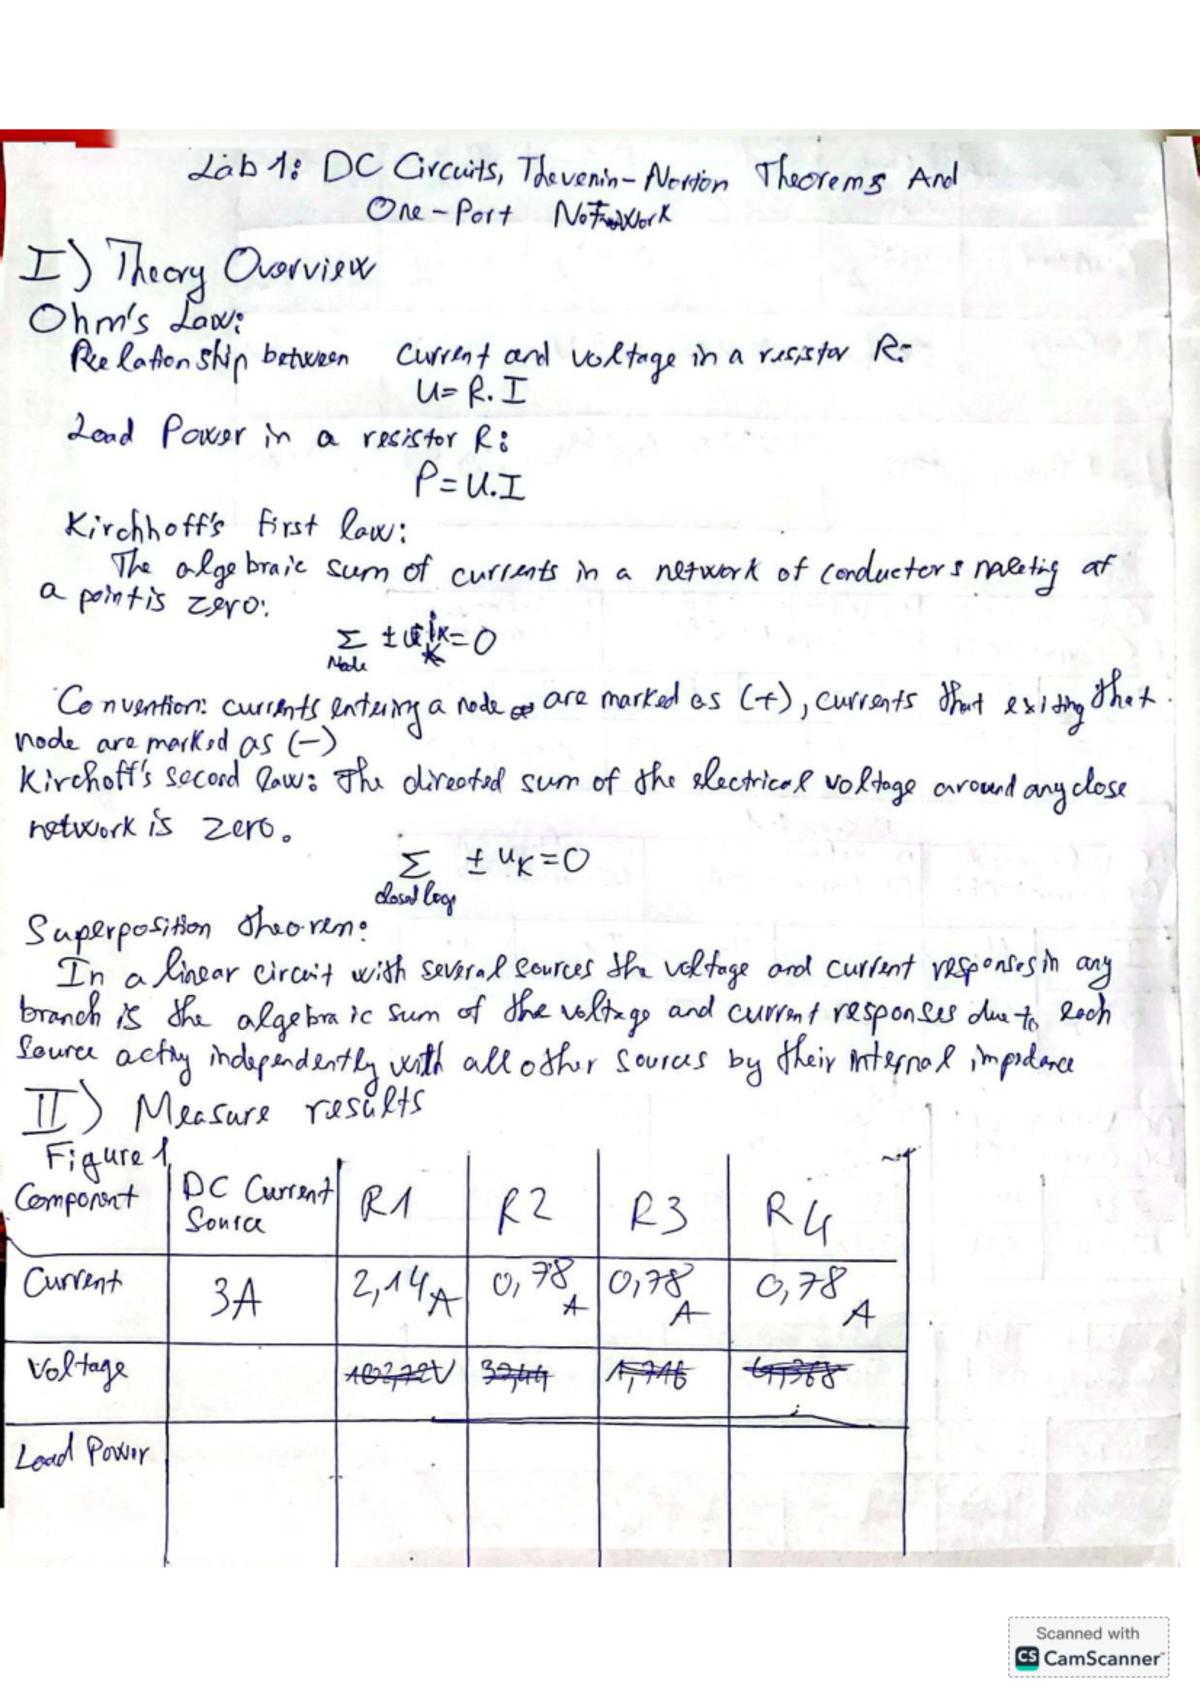 Lab 1: DC Circuits, Thevenin-Norton Theorems And
One-Port Network
I) Theory Overview
Ohm's Law:
Relationship between current and voltage in a resistor R:
U= R. I
Load Power in a resistor R:
P=U.I
Kirchhoff's first law:
The algebraic sum of currents in a network of conductors meeting at
a point is zero:
Σ ± iK=0
Node
Convention: currents entering a node are marked as (+), currents that exiting that
node are marked as (-)
Kirchoff's second law: The directed sum of the electrical voltage around any close
network is zero.
Σ ± uK=0
closed loop
Superposition theorem:
In a linear circuit with several sources the voltage and current responses in any
branch is the algebraic sum of the voltage and current responses due to each
source actiy independently with all other sources by their internal impedance
II) Measure results
Figure 1
Component DC Current Source R1 R2 R3 R4
Current 3A 2,14A 0,78 A 0,78 A 0,78 A
Voltage
Load Power
Scanned with
CS CamScanner